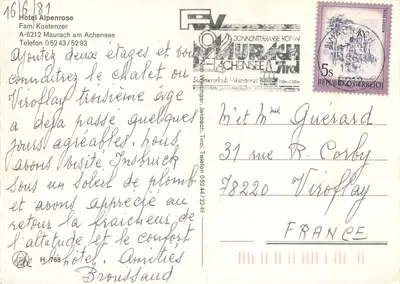 16/6/81
Hotel Alpenrose
Fam. Kostenzer
A-6212 Maurach am Achensee
Telefon 05243/5293
Ajoutez deux étages et vous
connaîtrez le chalet ou
Viroflay troisième âge
a déjà passé quelques
jours agréables. Nous
avons visité Innsbruck
sous un soleil de plomb
et avons apprécié au
retour la fraîcheur de
l'altitude et le confort
de l'hôtel. Amitiés
Broussaud
Jenbach, Tirol, Telefon 05244/2246
MAURACH
ACHENSEE
Tirol
5S
REPUBLIK ÖSTERREICH
M et Mme Guérard
31 rue R. Corby
78220 Viroflay
FRANCE